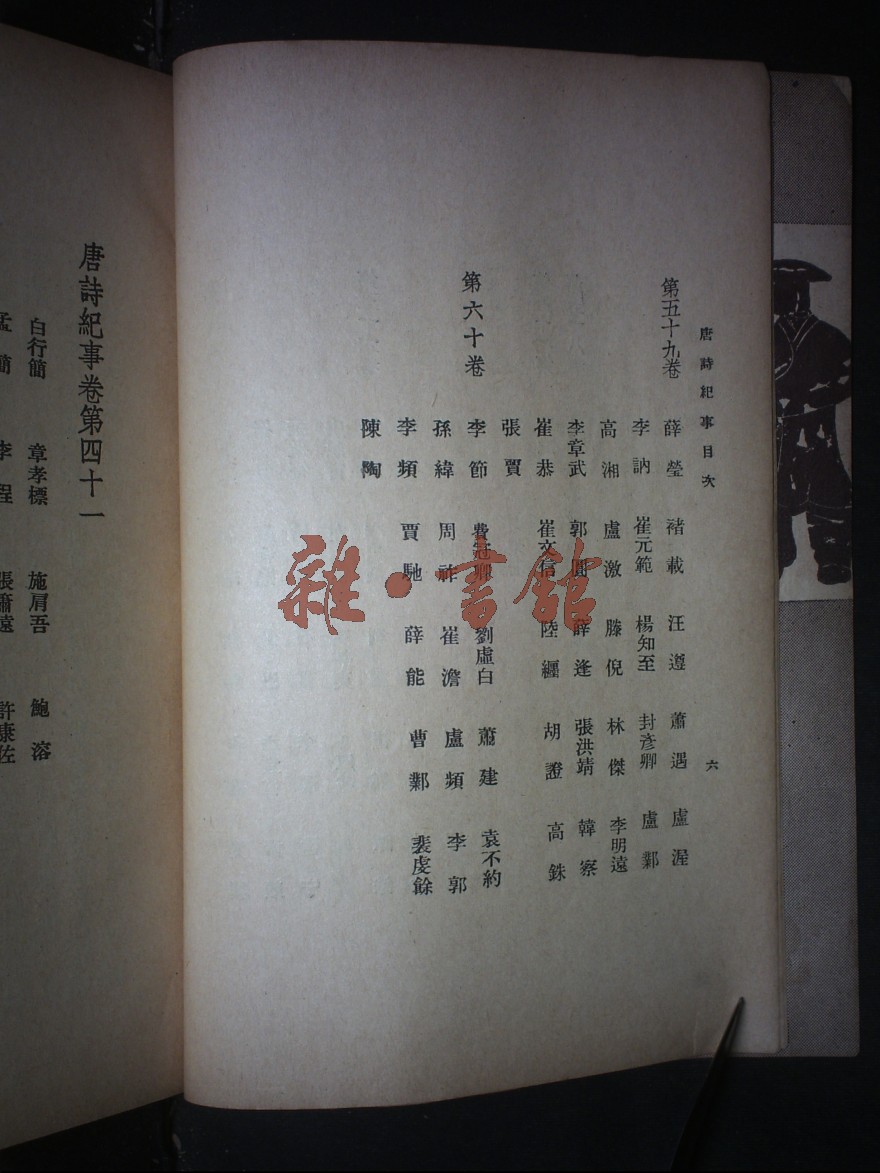 唐詩紀事目次
六
第五十九卷
薛瑩 褚載 汪遵 蕭遇 盧渥
李訥 崔元範 楊知至 封彥卿 盧鄴
高湘 盧激 滕倪 林傑 李明遠
李章武 郭圓 薛逢 張洪靖 韓察
崔恭 崔文信 陸繼 胡證 高銖
張賈
第六十卷
李節 費冠卿 劉虛白 蕭建 袁不約
孫緯 周祚 崔澹 盧頻 李郭
李頻 賈馳 薛能 曹鄴 裴虔餘
陳陶
雜·書館
唐詩紀事卷第四十一
白行簡 章孝標 施肩吾 鮑溶
孟簡 李程 張蕭遠 許康佐